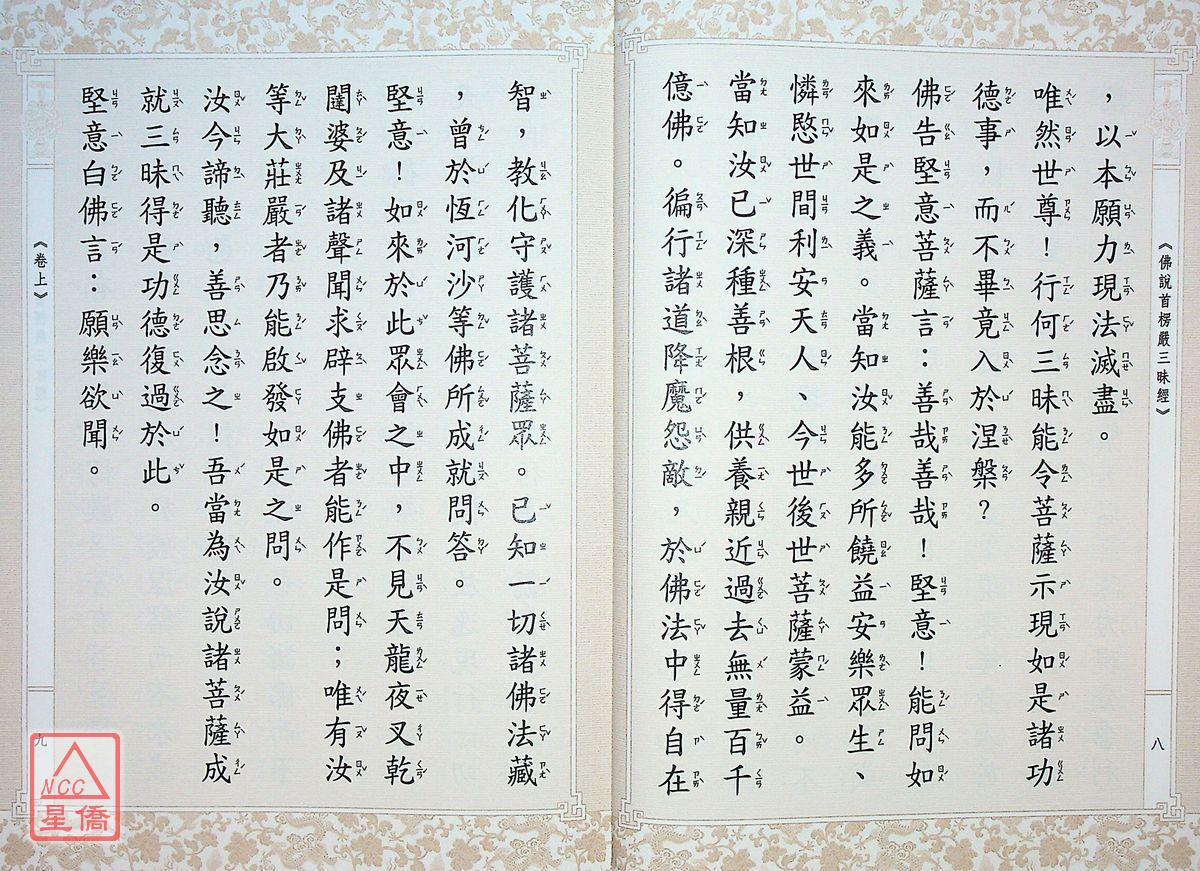 《佛說首楞嚴三昧經》
八
，以本願力現法滅盡。
唯然世尊！行何三昧能令菩薩示現如是諸功
德事，而不畢竟入於涅槃？
佛告堅意菩薩言：善哉善哉！堅意！能問如
來如是之義。當知汝能多所饒益安樂眾生、
憐愍世間利安天人、今世後世菩薩蒙益。
當知汝已深種善根，供養親近過去無量百千
億佛。徧行諸道降魔怨敵，於佛法中得自在
智，教化守護諸菩薩眾。已知一切諸佛法藏
，曾於恆河沙等佛所成就問答。
堅意！如來於此眾會之中，不見天龍夜叉乾
闥婆及諸聲聞求辟支佛者能作是問；唯有汝
等大莊嚴者乃能啟發如是之問。
汝今諦聽，善思念之！吾當為汝說諸菩薩成
就三昧得是功德復過於此。
堅意白佛言：願樂欲聞。
《卷上》
九
NCC
星僑